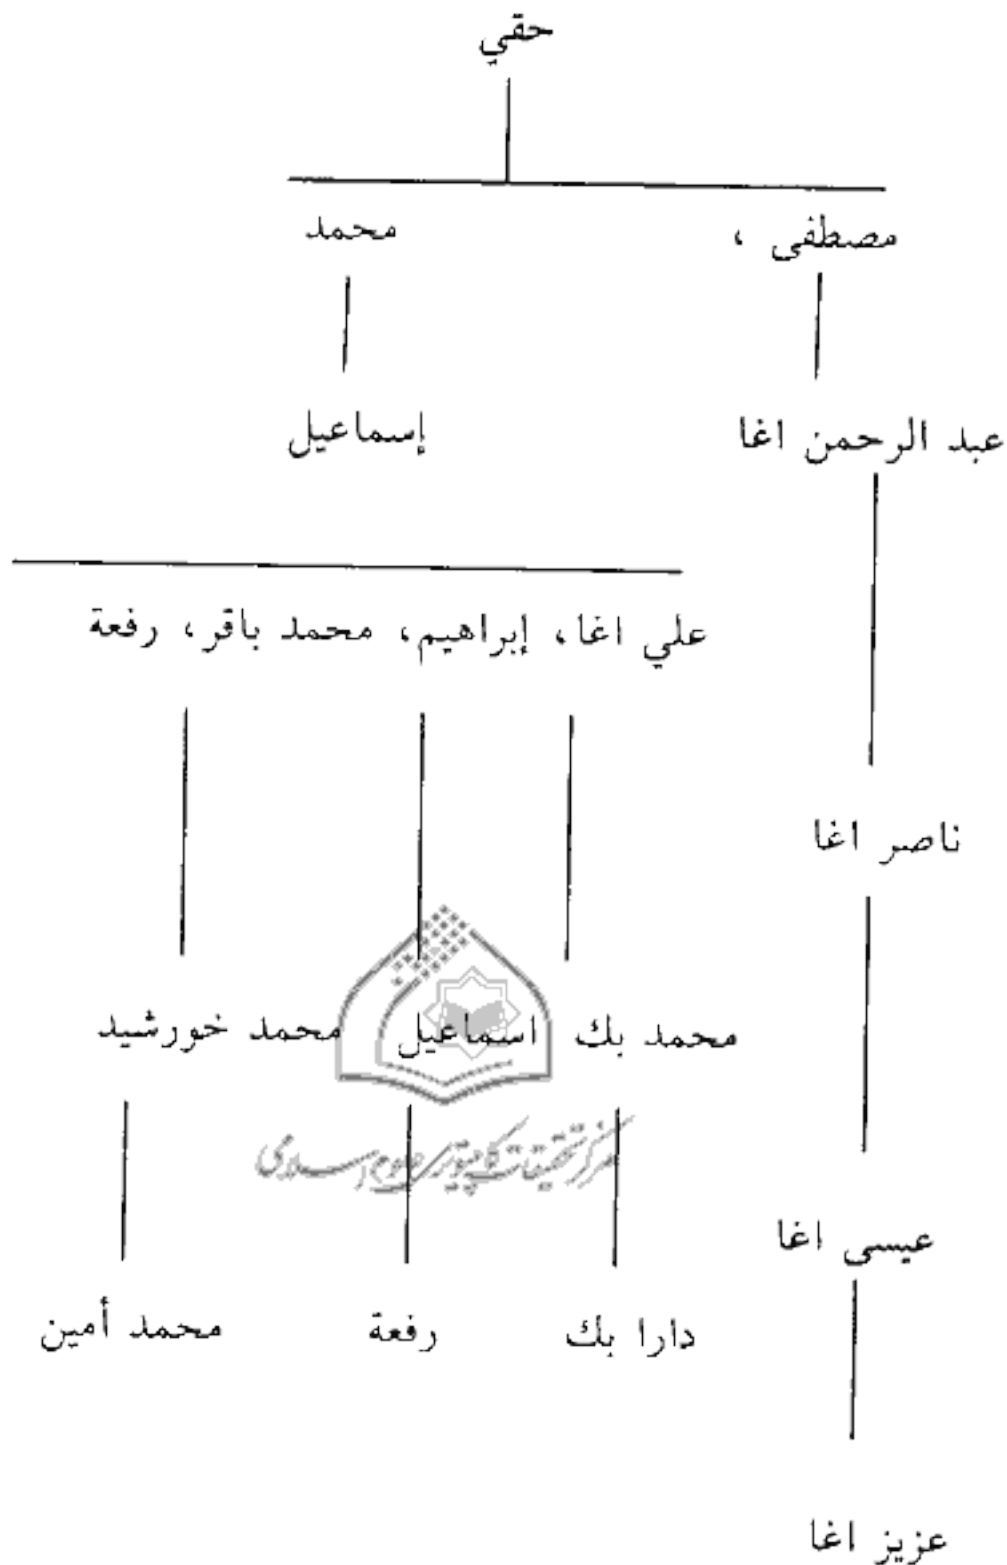 حقي
مصطفى ، محمد
عبد الرحمن اغا إسماعيل
علي اغا، إبراهيم، محمد باقر، رفعة
ناصر اغا
محمد بك اسماعيل محمد خورشيد
مركز تحقيقات كامپيوتری علوم اسلامی
عيسى اغا
دارا بك رفعة محمد أمين
عزيز اغا